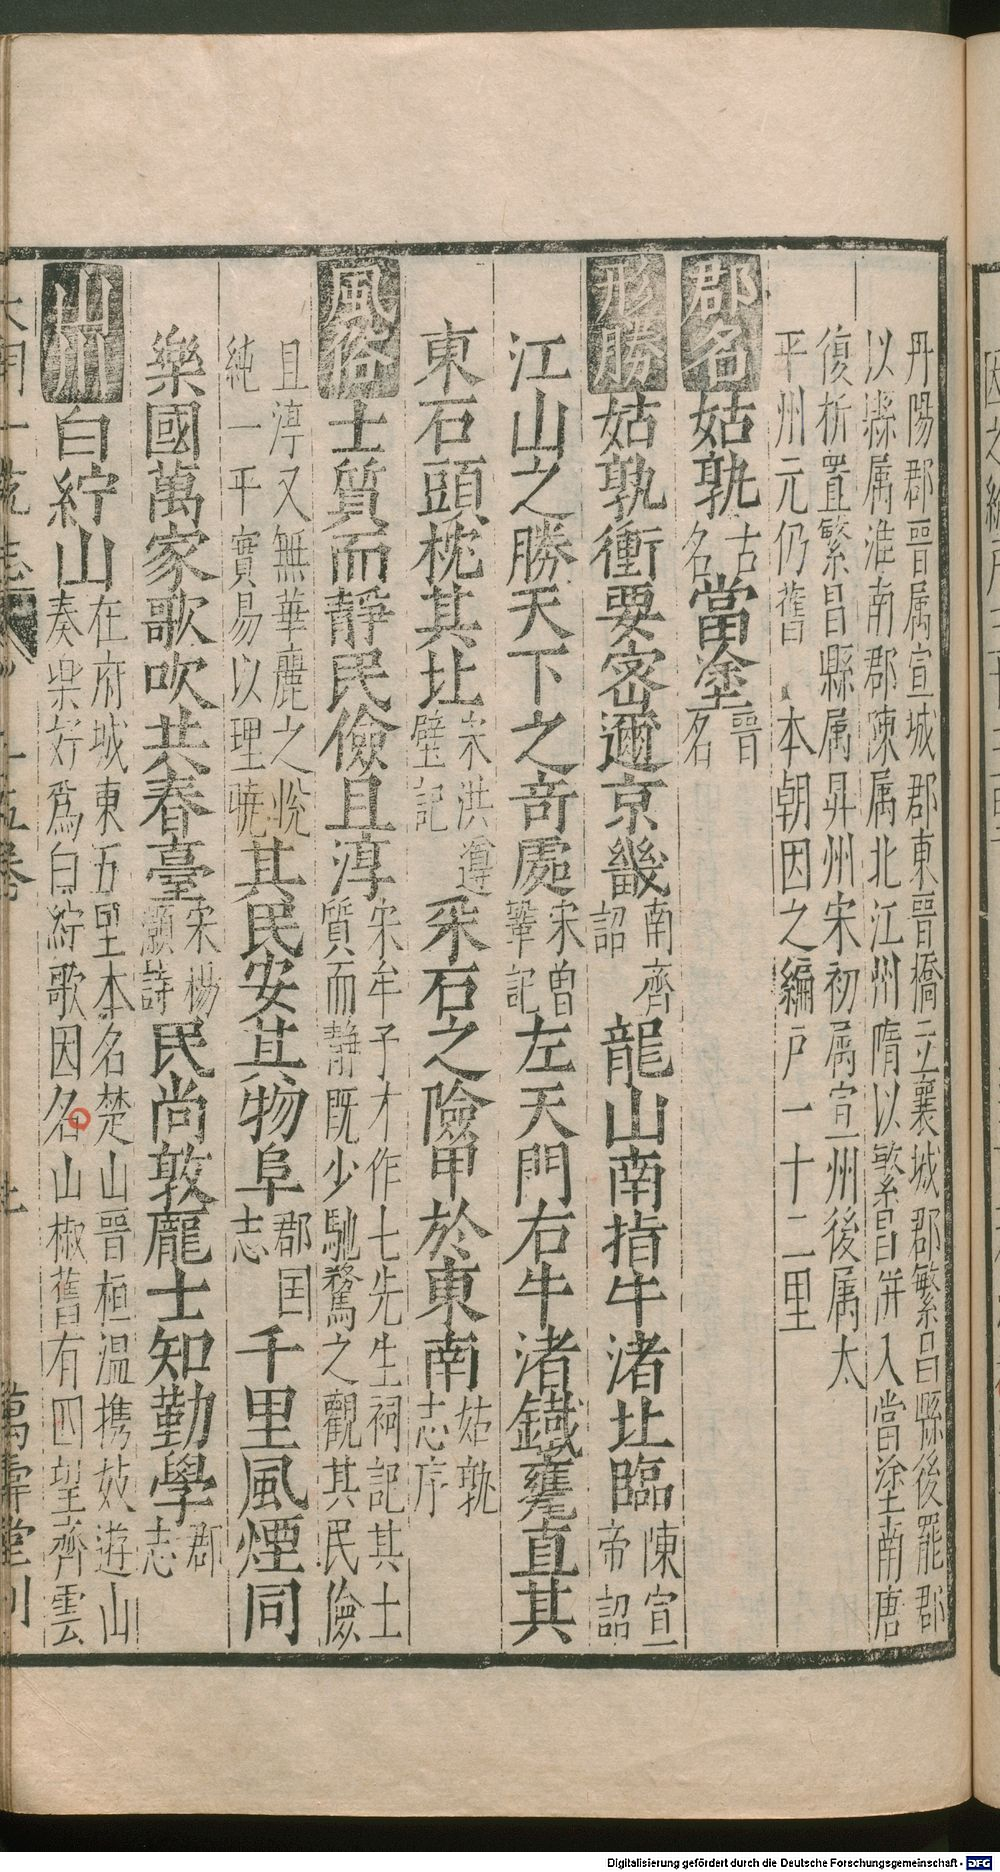 丹陽郡晉属宣城郡東晉僑立襄城郡繁昌縣後罷郡
以縣属淮南郡陳属北江州隋以繁昌併入當塗南唐
復析置繁昌縣属昇州宋初属宣州後属太
平州元仍舊本朝因之編戶一十二里
郡名 姑孰 古名 當塗 晉名
形勝 姑孰衝要密邇京畿 南齊詔 龍山南指牛渚北臨 陳宣帝詔
江山之勝天下之奇處 宋曾鞏記 左天門右牛渚鐵甕直其
東石頭枕其北 宋洪遵壁記 采石之險甲於東南 姑孰志序
風俗 士質而靜民儉且淳 宋牟子才作七先生祠記其土質而静既少馳騖之觀其民儉
且淳又無華麗之悅純一平實易以理曉 其民安其物阜 郡国志 千里風煙同
樂國萬家歌吹共春臺 宋楊灝詩 民尚敦龐士知勤學 郡志
山川 白紵山 在府城東五里本名楚山晉桓温携妓遊山奏樂好爲白紵歌因名山椒舊有四望齊雲
大明一統志 十五卷 七 萬壽堂刊
Digitalisierung gefördert durch die Deutsche Forschungsgemeinschaft - DFG